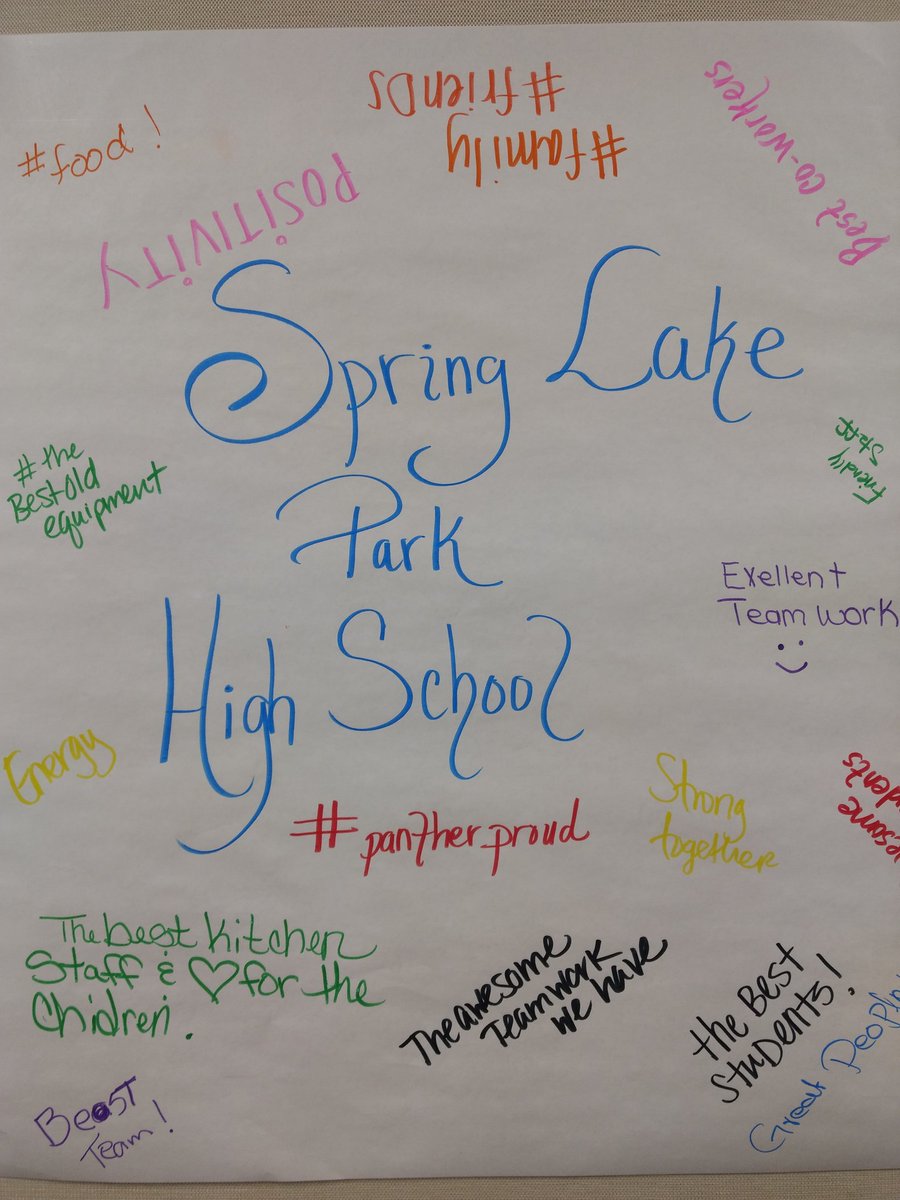 #food!
#friends
#family
POSITIVITY
Best co-workers
Spring Lake
Park
High School
#the
Best old
equipment
Friendly
Staff
Exellent
Team work
Energy
#pantherproud
Strong
together
The best kitchen
Staff & ♡ for the
Chidren.
The awesome
Teamwork
we have
the Best
students!
Great People
Beast
Team!